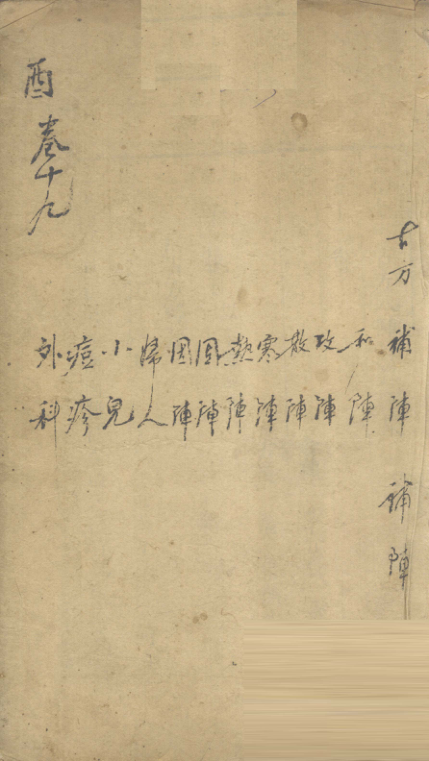 古方 補陣 鋪陣
和陣
攻陣
散陣
寒陣
熱陣
固陣
因陣
婦人
小兒
痘疹
外科
酉 卷十九